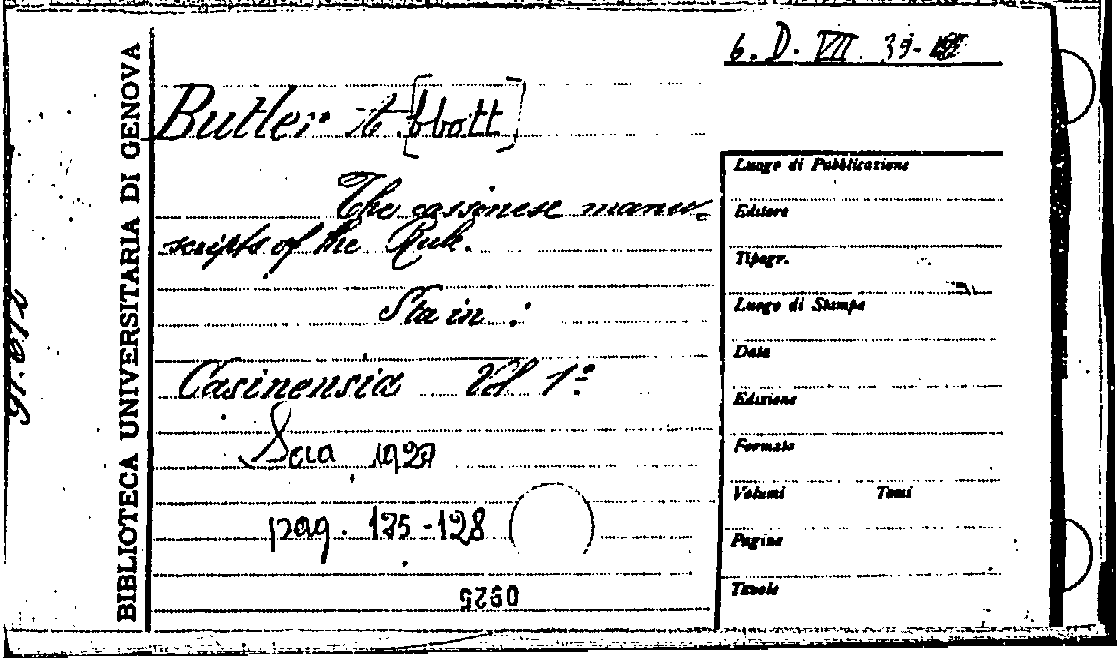 6. D. VII. 39-
BIBLIOTECA UNIVERSITARIA DI GENOVA
Butler A.[bbott]
The cassinese manu-
scripts of the Rule.
Sta in :
Casinensia Vol 1º
Sora 1929
pag. 125-128
0925
Luogo di Pubblicazione
Editore
Tipogr.
Luogo di Stampa
Data
Edizione
Formato
Volumi Tomi
Pagine
Tavole